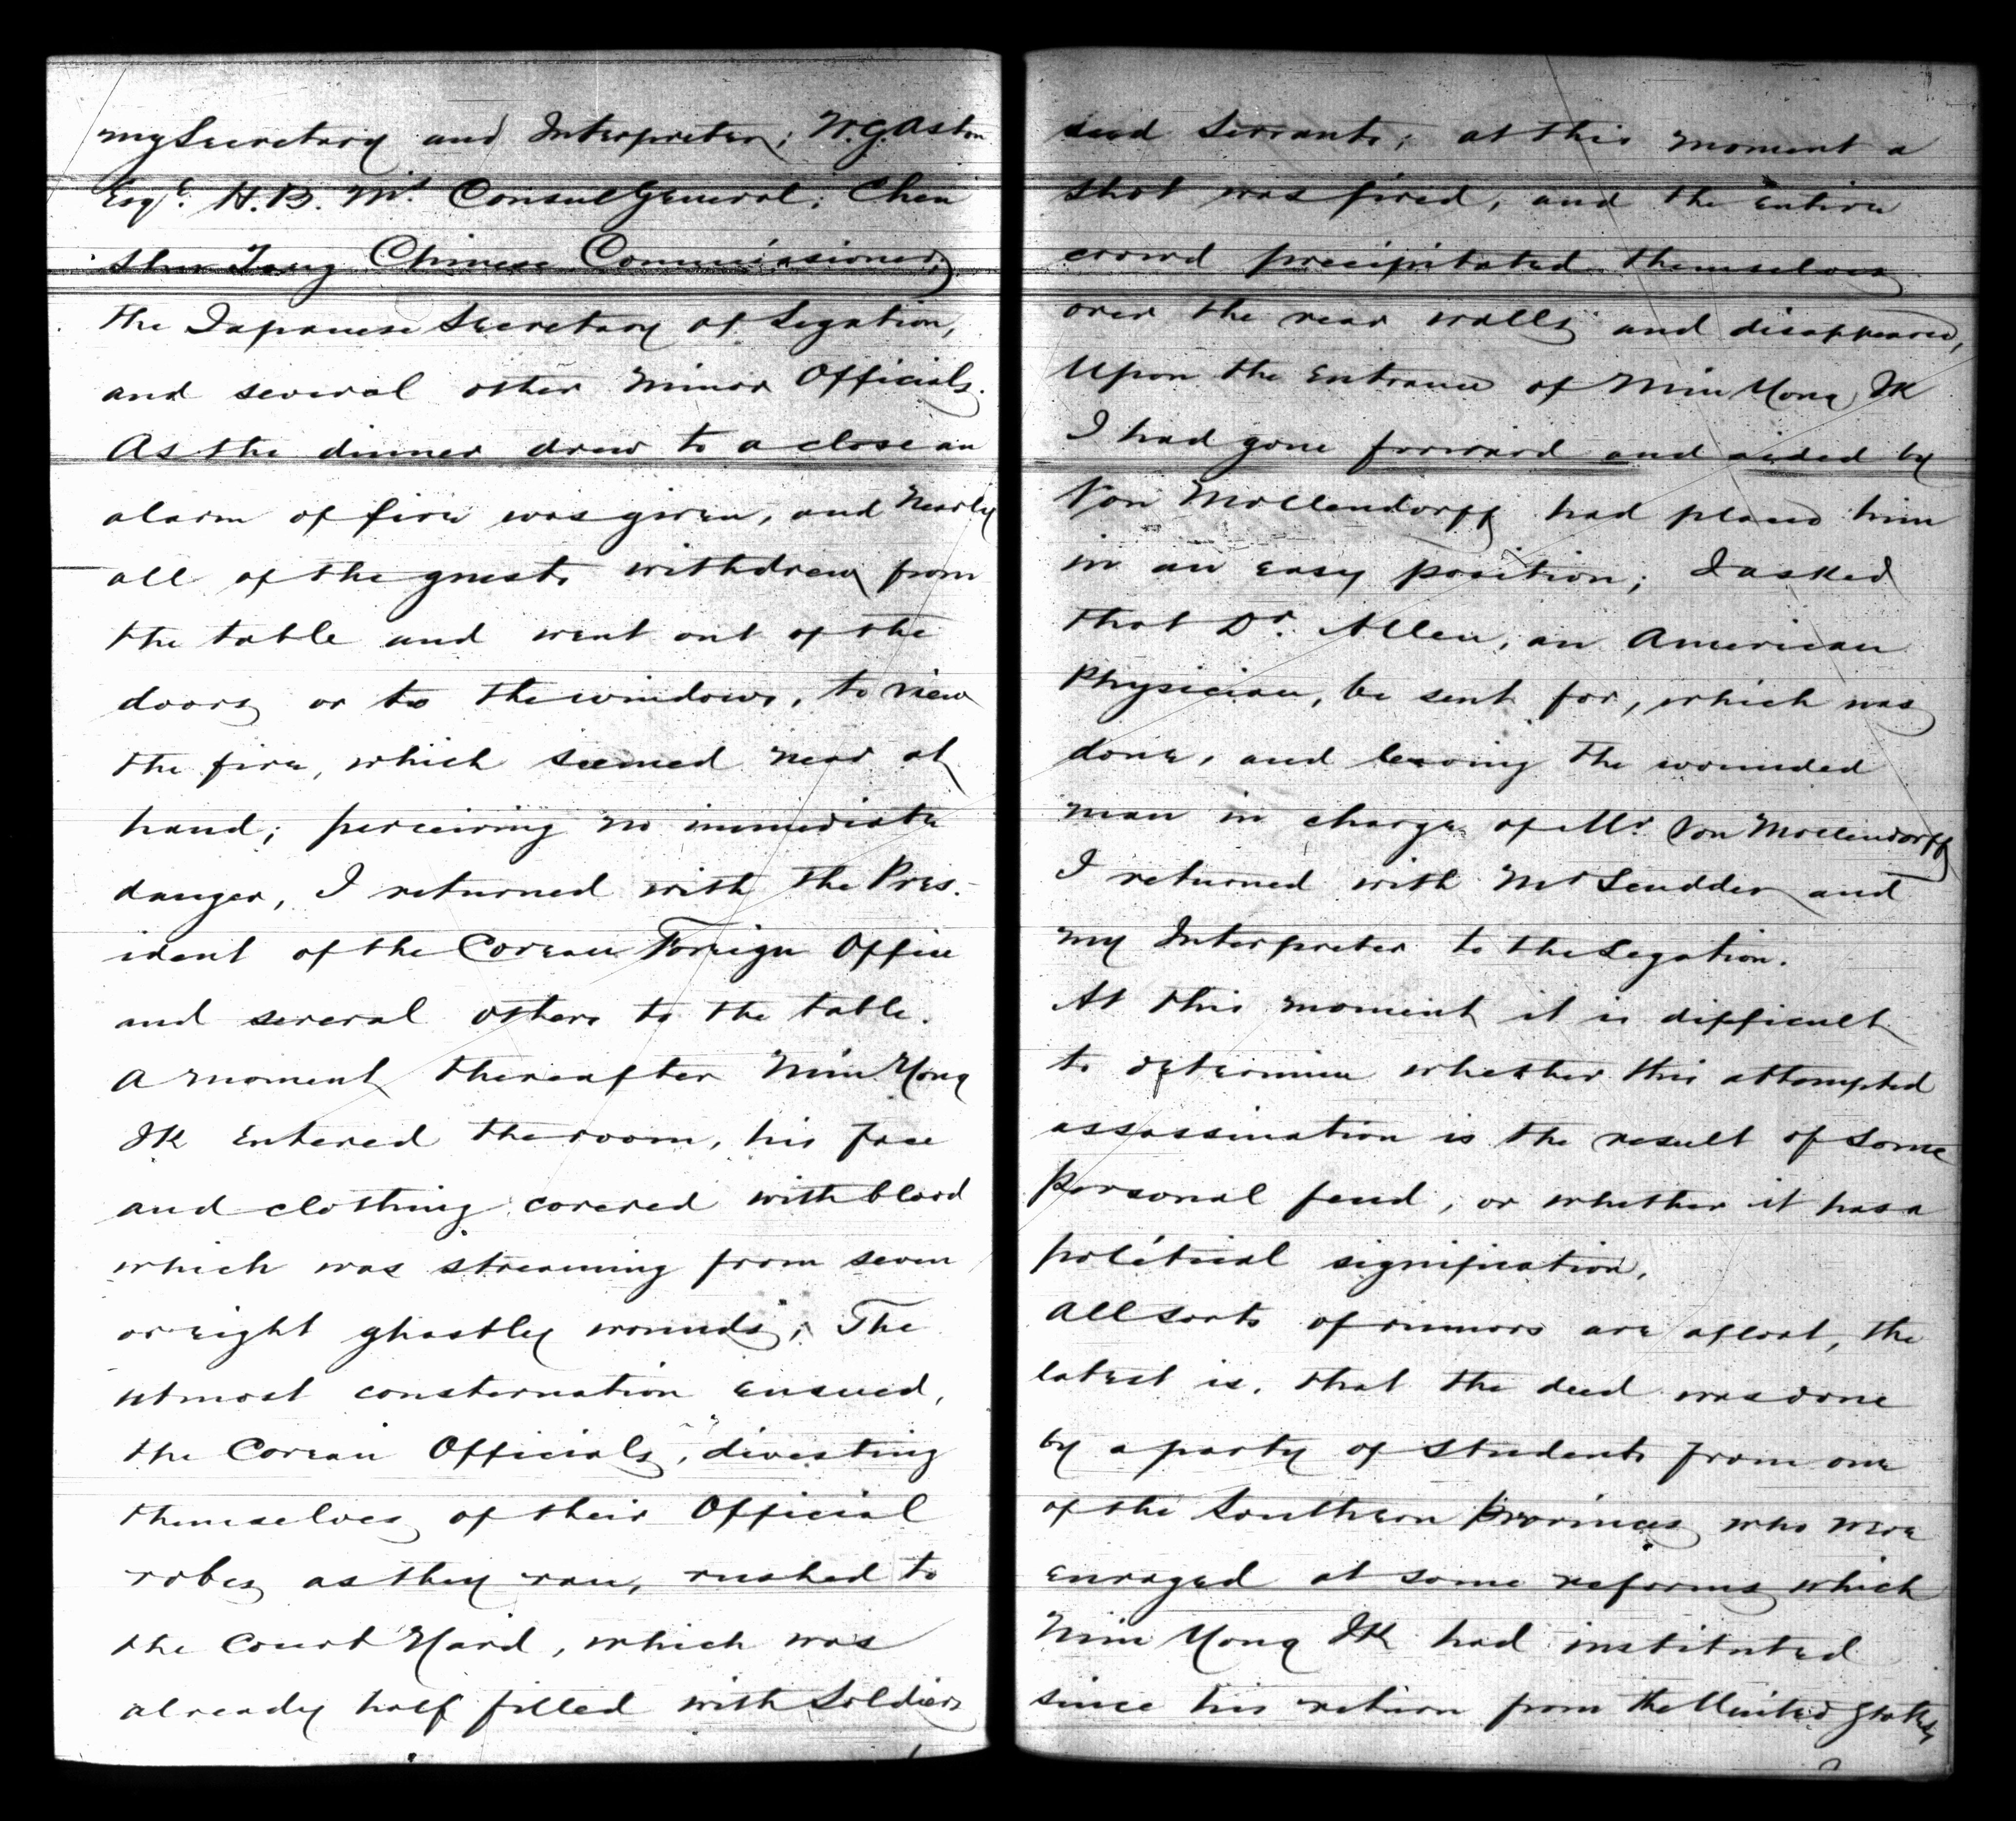 my Secretary and Interpreter; W. G. Aston
Esqr. H. B. Ms. Consul General; Chen
Shu Tang Chinese Commissioner,
the Japanese Secretary of Legation,
and several other minor Officials.
As the dinner drew to a close an
alarm of fire was given, and nearly
all of the guests withdrew from
the table and went out of the
doors or to the windows, to view
the fire, which seemed near at
hand; perceiving no immediate
danger, I returned with the Pres-
ident of the Corean Foreign Office
and several others to the table.
A moment thereafter Min Yong
Ik entered the room, his face
and clothing covered with blood
which was streaming from seven
or eight ghastly wounds; The
utmost consternation ensued,
the Corean Officials, divesting
themselves of their Official
robes as they ran, rushed to
the Court Yard, which was
already half filled with Soldiers
and Servants; at this moment a
shot was fired, and the entire
crowd precipitated themselves
over the rear walls and disappeared,
Upon the entrance of Min Yong Ik
I had gone forward and aided by
Von Mollendorff had placed him
in an easy position; I asked
that Dr. Allen, an American
Physician, be sent for, which was
done, and leaving the wounded
man in charge of Mr Von Mollendorff
I returned with Mr Scudder and
my Interpreter to the Legation.
At this moment it is difficult
to determine whether this attempted
assassination is the result of some
personal feud, or whether it has a
political signification.
All sorts of rumors are afloat, the
latest is, that the deed was done
by a party of Students from one
of the Southern Provinces who were
enraged at some reforms which
Min Yong Ik had instituted
since his return from the United States